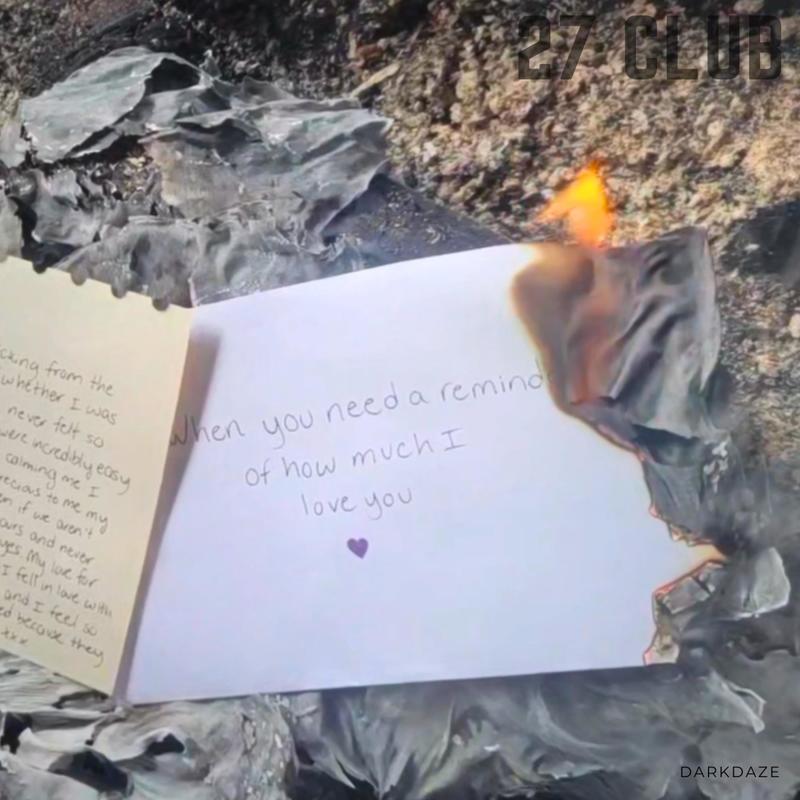 27 CLUB
cking from the
whether I was
never felt so
were incredibly easy
calming me I
recious to me my
en if we aren't
ours and never
yes My love for
I fell in love with
and I feel so
ed because they
xxx
When you need a remind
of how much I
love you
DARKDAZE